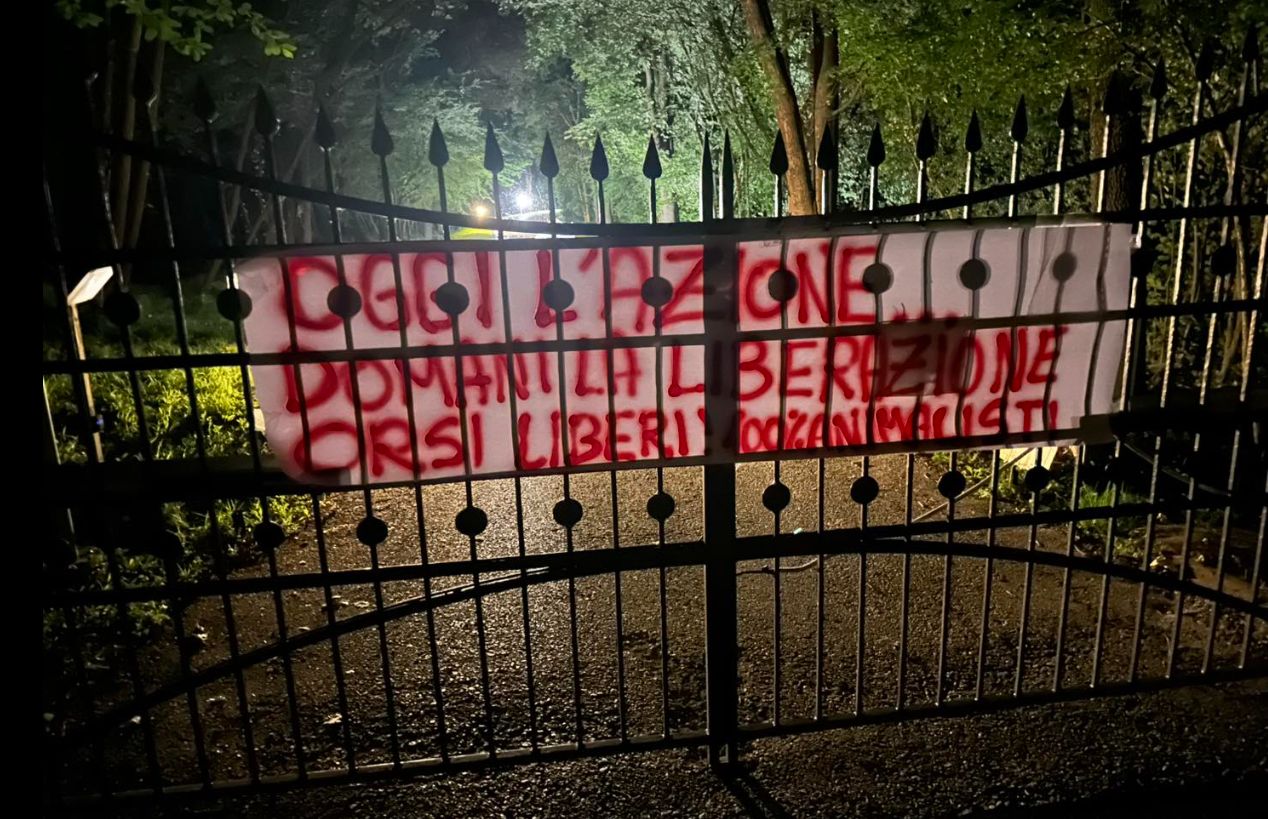 OGGI L'AZIONE
DOMANI LA LIBERAZIONE
ORSI LIBERI! 100% ANIMALISTI